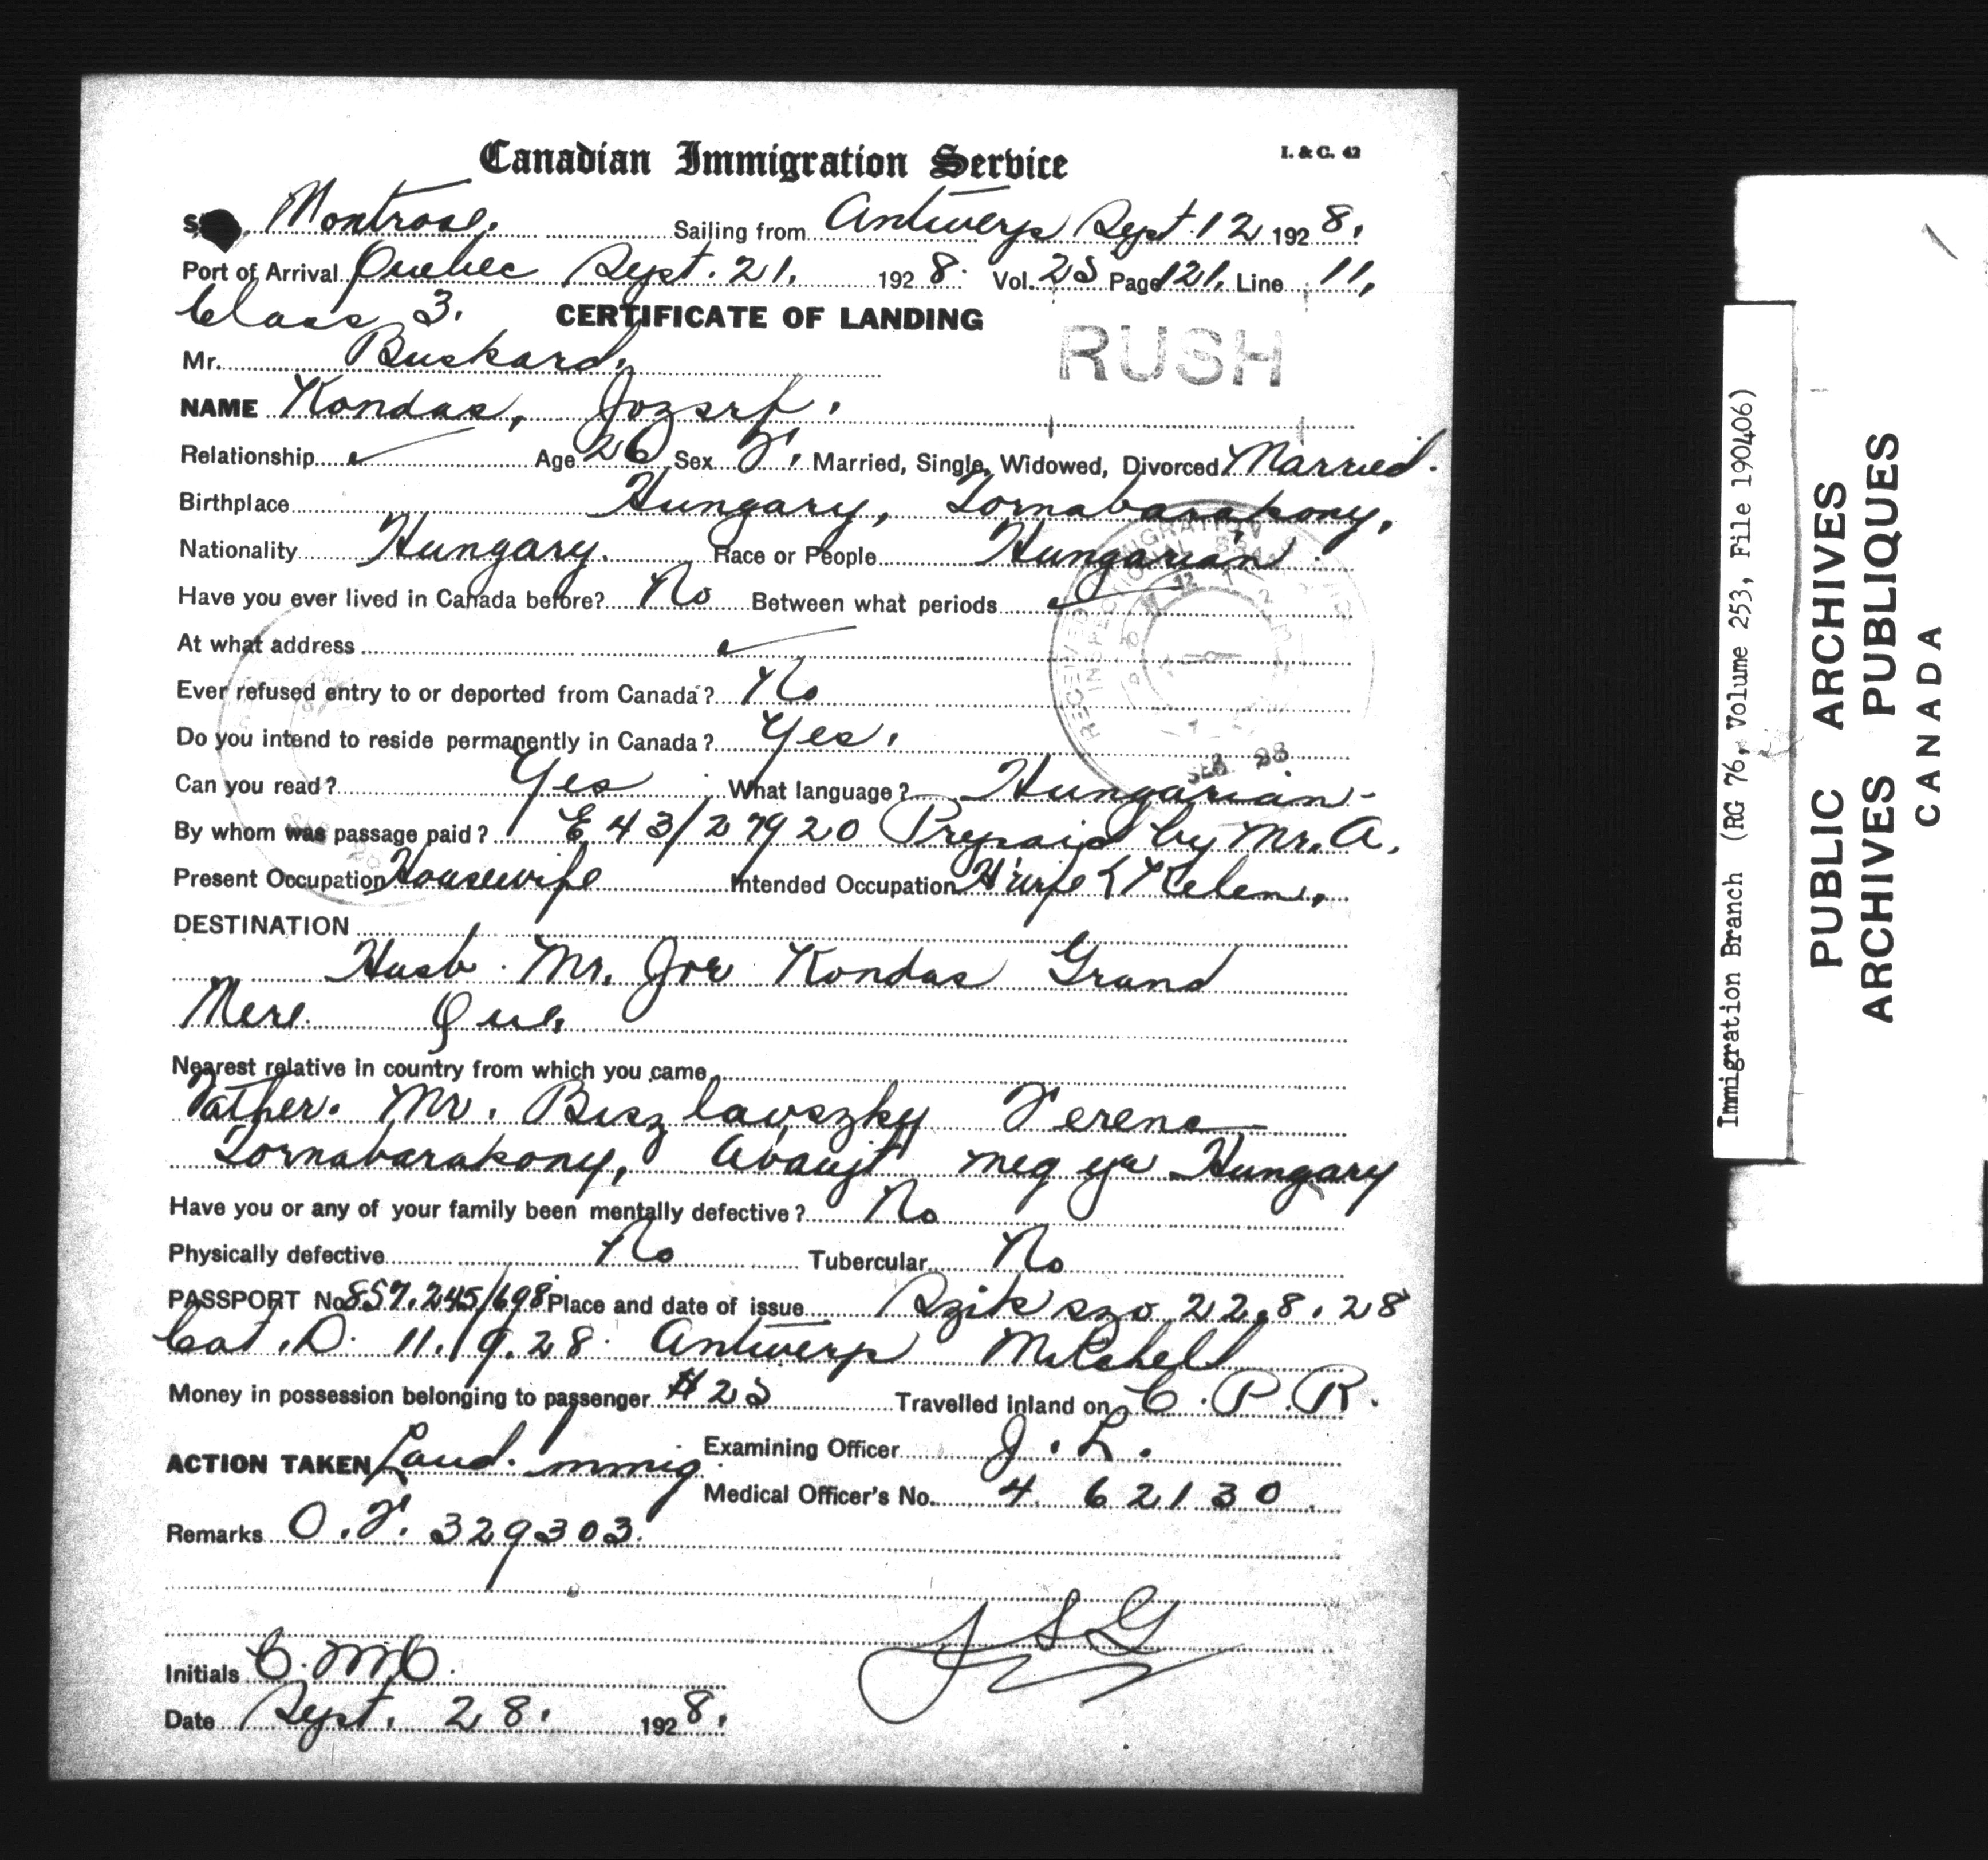 Canadian Immigration Service
I. & C. 42
Montrose. Sailing from Antwerp Sept. 12 1928.
Port of Arrival Quebec Sept. 21. 1928. Vol. 25 Page 121. Line 11.
Class 3. CERTIFICATE OF LANDING
RUSH
Mr. Buskard.
NAME Kondas, Jozsef.
Relationship Age 26 Sex F. Married, Single, Widowed, Divorced Married.
Birthplace Hungary, Tornabarakony,
Nationality Hungary. Race or People Hungarian
Have you ever lived in Canada before? No Between what periods
At what address
Ever refused entry to or deported from Canada? No
Do you intend to reside permanently in Canada? Yes.
Can you read? Yes What language? Hungarian
By whom was passage paid? E 43/27920 Prepaid by Mr. A.
Present Occupation Housewife Intended Occupation H'wife Kelen.
DESTINATION
Husb. Mr. Joe Kondas Grand
Mere Que.
Nearest relative in country from which you came
Father. Mr. Ferenc
Tornabarakony, Abaujt meg ye Hungary
Have you or any of your family been mentally defective? No
Physically defective No Tubercular No
PASSPORT No. 857.245/698. Place and date of issue Szikszo 22.8.28
Cat. D. 11.9.28. Antwerp Mitchell
Money in possession belonging to passenger $25 Travelled inland on C.P.R.
ACTION TAKEN Land. Immig. Examining Officer J.L.
Medical Officer's No. 4 62130.
Remarks O.F. 329303.
Initials C.McC.
Date Sept. 28. 1928.
Immigration Branch (RG 76, Volume 253, File 190406)
PUBLIC ARCHIVES
ARCHIVES PUBLIQUES
CANADA